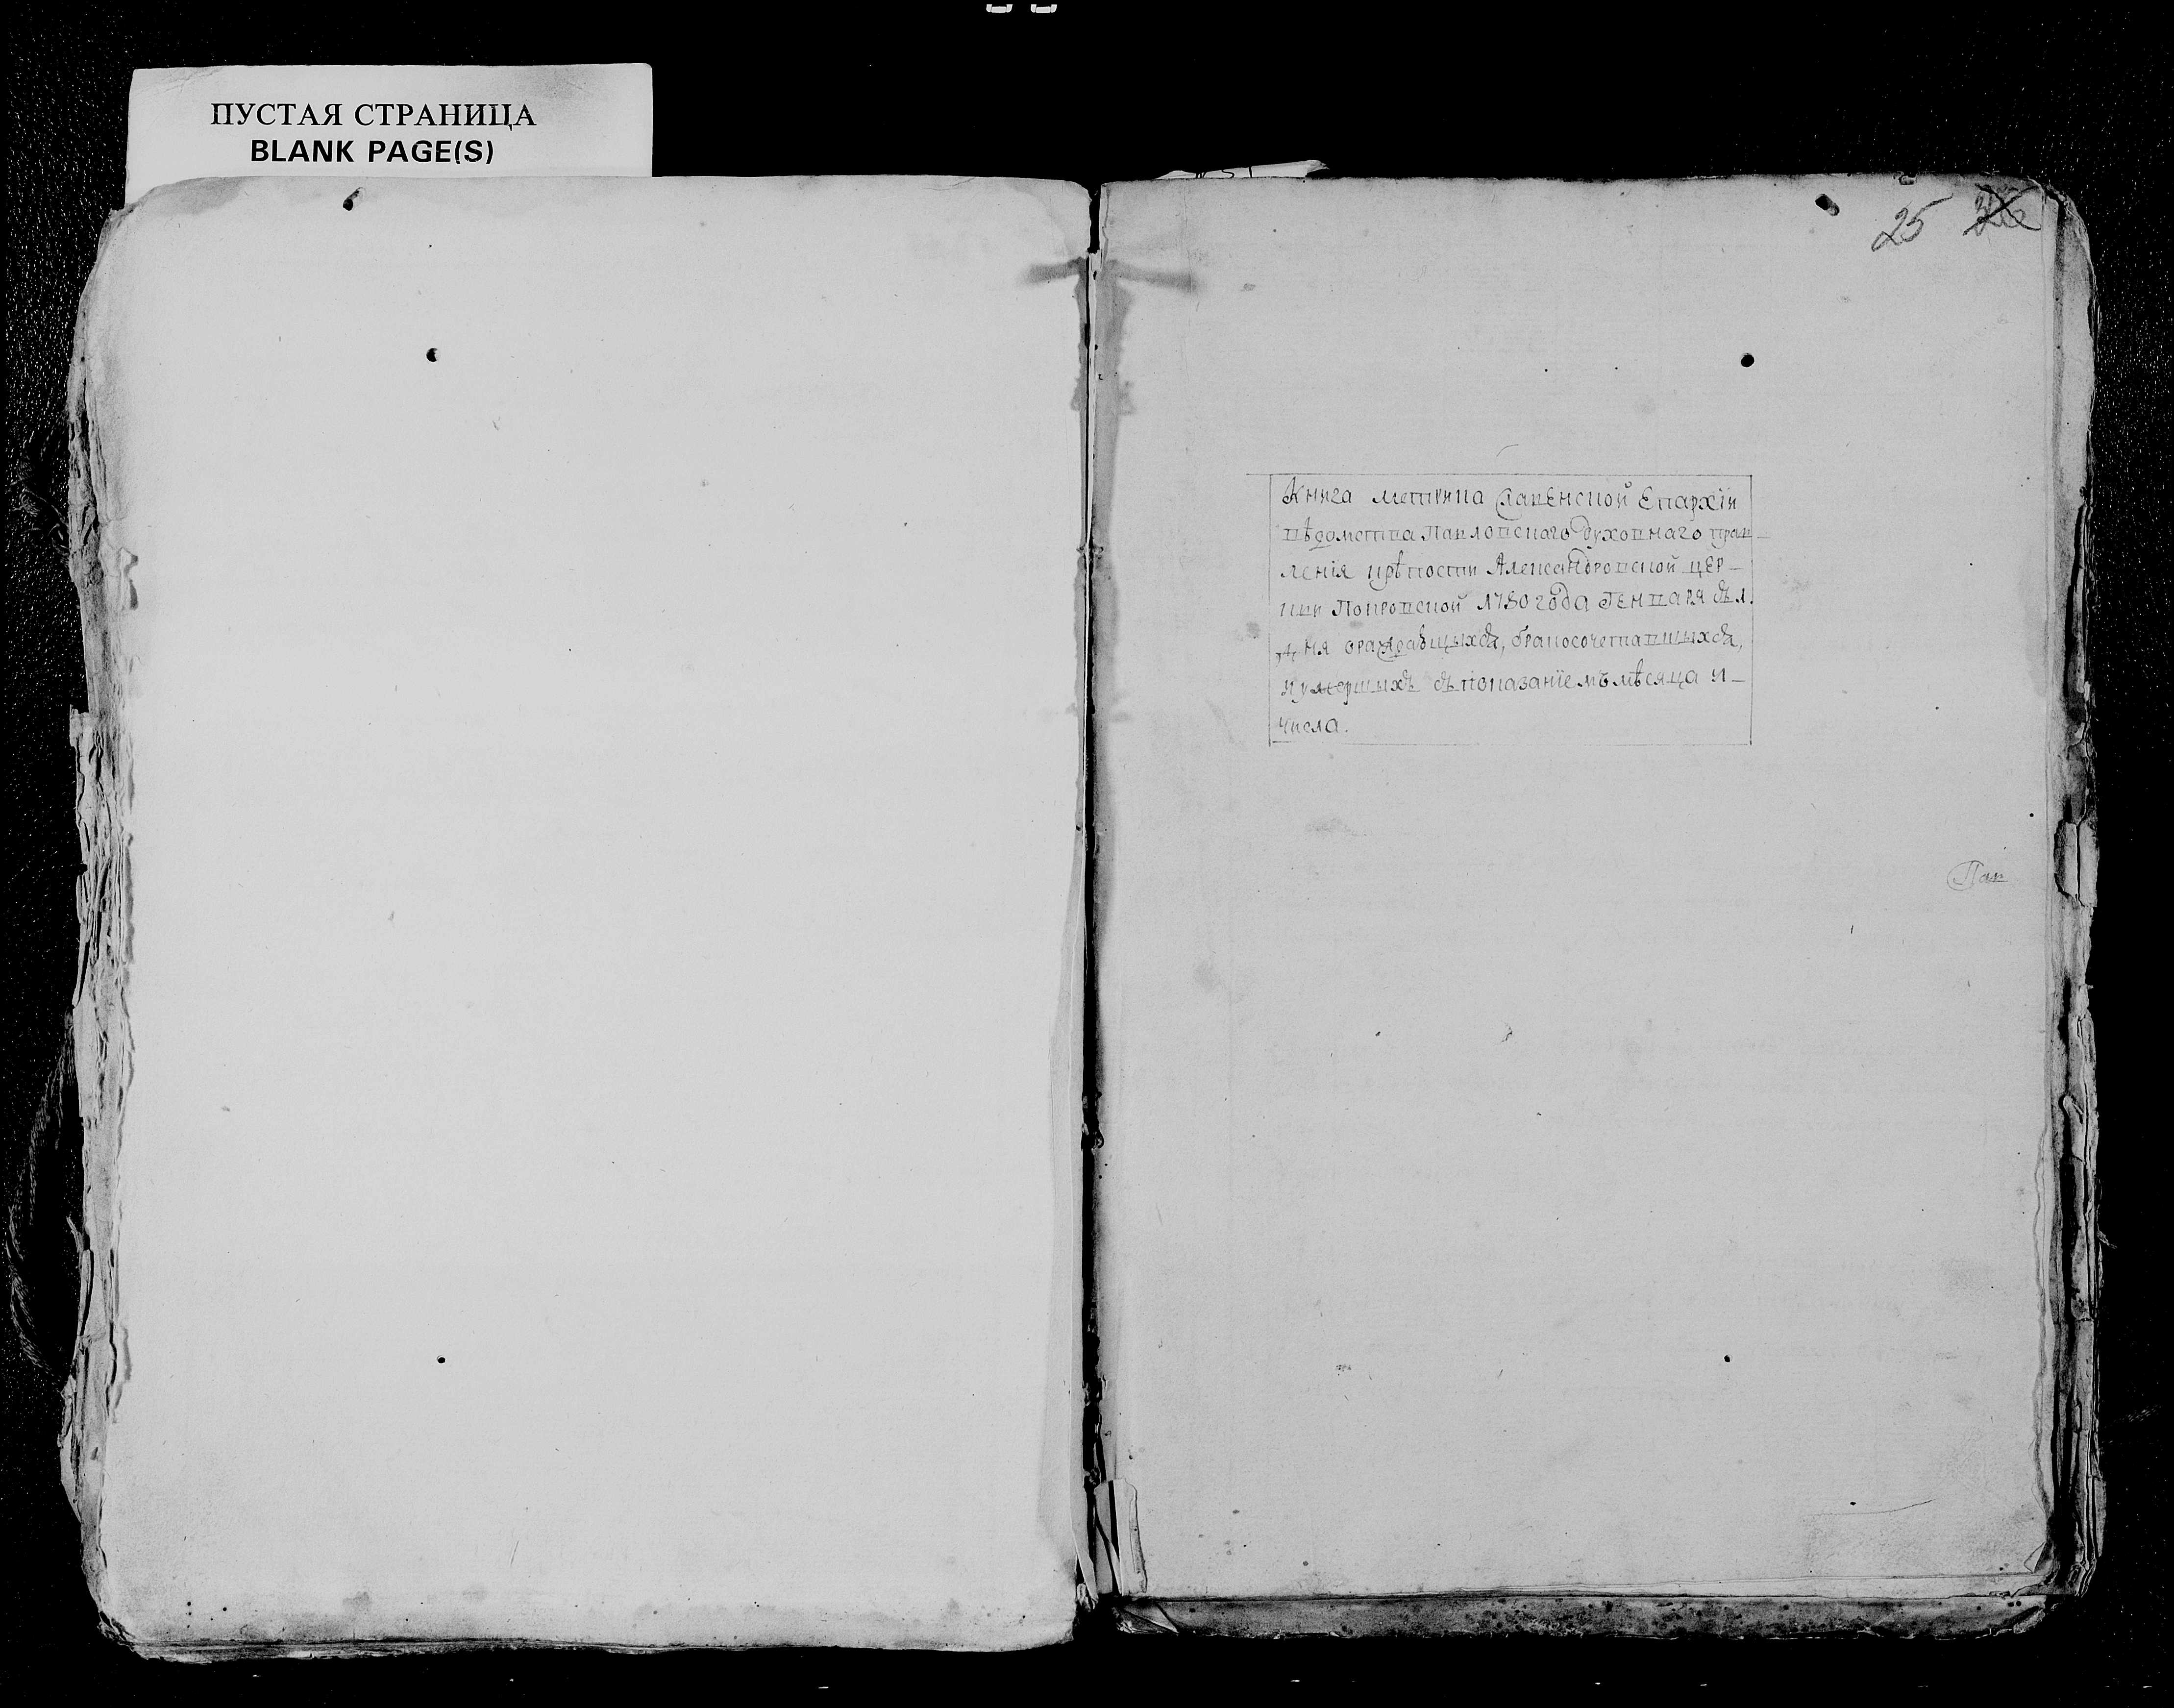 ПУСТАЯ СТРАНИЦА
BLANK PAGE(S)
25
Книга метрика Славенской Епархїи
вѣдомства Павловского духовнаго прав-
ленїя крѣпости Александровской цер-
кви Покровской 1780 года Генваря съ 1.
дня браносочетавшыхся,
и умершыхъ съ показанїемъ мѣсяца и-
числа.
Пав